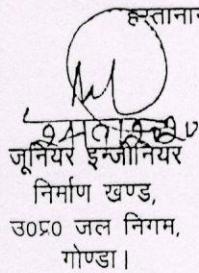 जूनियर इन्जीनियर
निर्माण खण्ड,
उ0प्र0 जल निगम,
गोण्डा।